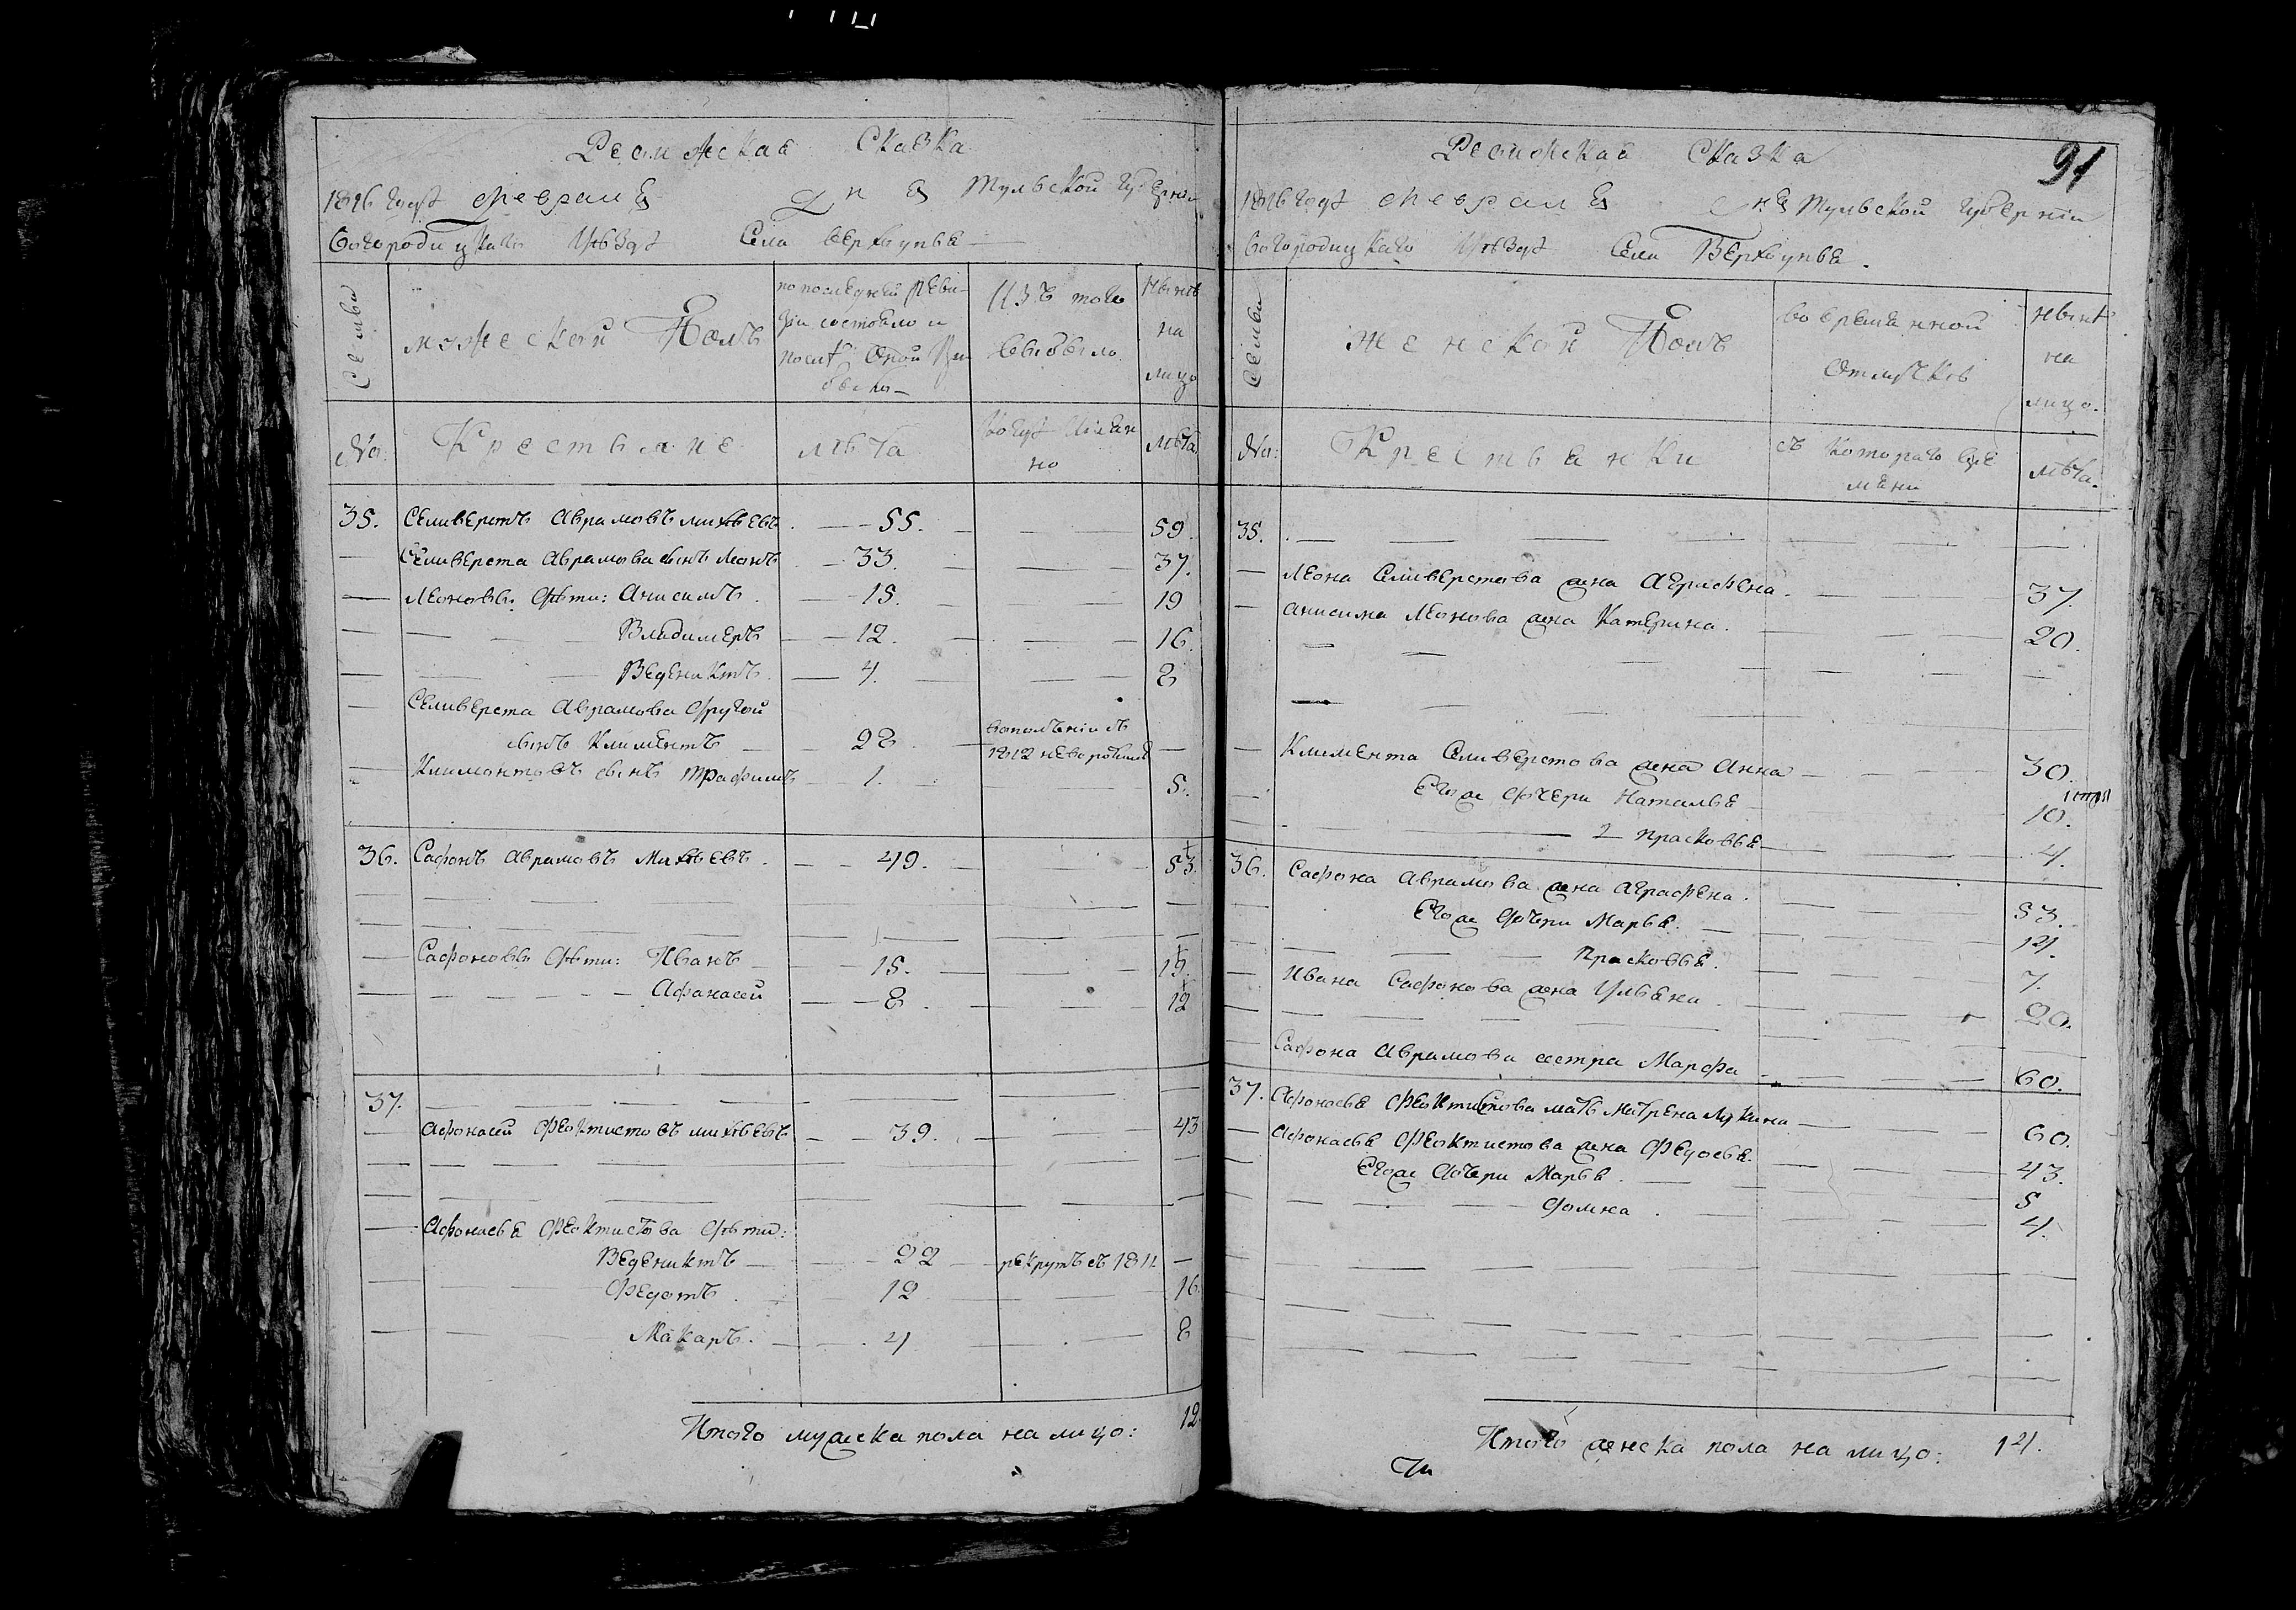 Ревижская Сказка
1816 году февраля дня Тульской Губернии
Богородицкаго Уѣзду Села Верхоупья
Семьи
мужеской Полъ
по последней Реви-
зіи состояло и
послѣ оной при
было
Изъ того
выбыло
Нынѣ
на
лицо
№
Крестьяне
лѣта
Когда имян
но
лѣта
35. Селиверстъ Аврамовъ Михѣевъ 55. 59.
Селиверста Аврамова сынъ Леонъ 33. 37.
Леоновы дѣти: Анисимъ 15. 19
Владимеръ 12. 16.
Ведениктъ 4. 8
Селиверста Аврамова другой
сынъ Климентъ 28 вополченіи съ
1812 неворотился
Климонтовъ сынъ Трафимъ 1. 5.
36. Сафонъ Аврамовъ Михѣевъ 49. 53.
Сафоновы дѣти: Иванъ 15. 19.
Афанасей 8. 12
37.
Афонасей Феоктистовъ Михѣевъ 39. 43
Афонасья Феоктистова дѣти:
Ведениктъ 22 рекрутъ съ 1811
Федотъ 12 16
Макаръ 4 8
Итого мужска пола на лицо: 12
Ревижская Сказка
91
1816 году февраля дня Тульской Губерніи
Богородицкаго Уѣзду Села Верхоупья.
Семьи
женской Полъ
во временной
отлучкѣ
нынѣ
на
лицо.
№:
Крестьянки
съ котораго вре
мяни
лѣта.
35.
Леона Селиверстова жена Аграфена 37.
Анисима Леонова жена Катерина 20.
Климента Селиверстова жена Анна 30.
Егож дочери Наталья 10.
2 Прасковья 4.
36. Сафона Аврамова жена Аграфена 53.
Егож дочери Марья 14.
Прасковья 7.
Ивана Сафонова жена Ульяна 20.
Сафона Аврамова сестра Марфа 60.
37. Афонасья Феоктистова мать Матрена Лукина 60.
Афонасья Феоктистова жена Федосья 43.
Егож дочери Марья 5
Домна 4.
Итого женска пола на лицо: 14.